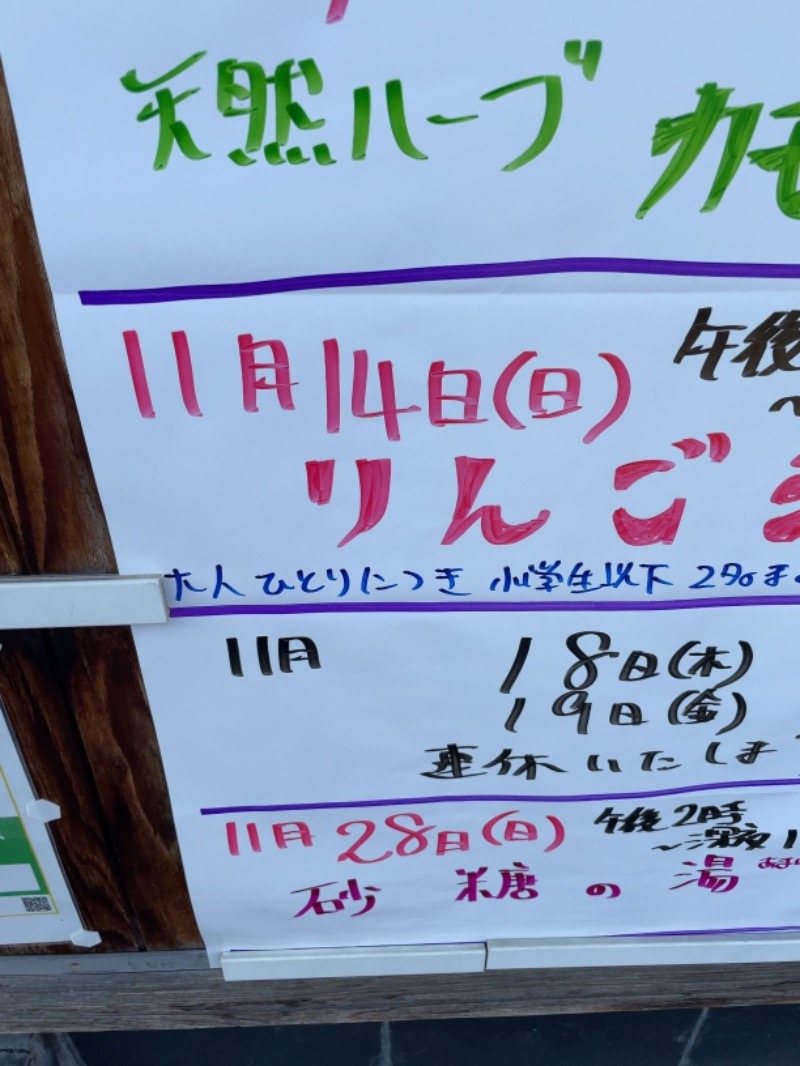 天然ハーブ カモ
11月14日(日) 午後
~
りんご
大人ひとりにつき 小学生以下 2名ま
11月 18日(木)
19日(金)
連休いたしま
11月28日(日) 午後2時
~深夜1
砂糖の湯